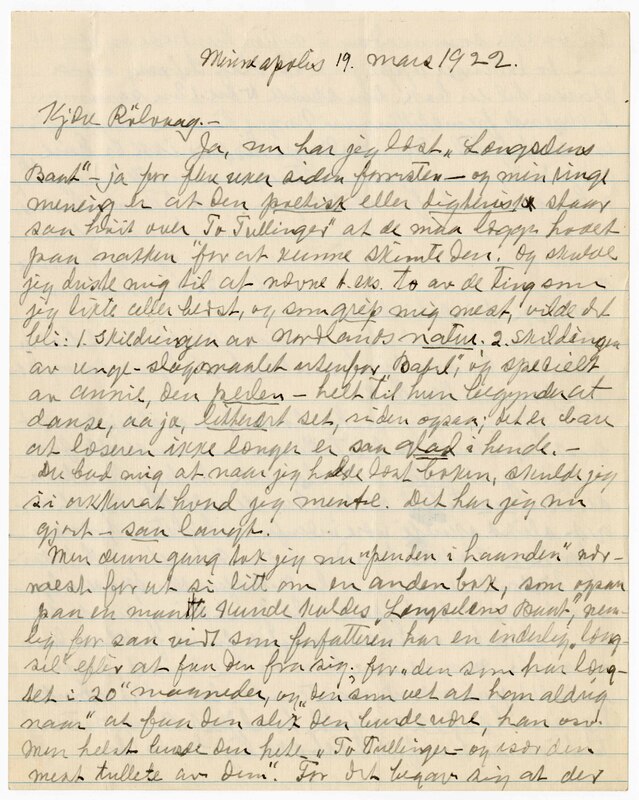 Minneapolis 19. mars 1922.
Kjære Rölvaag.-
Ja, nu har jeg læst „Længselens
Baat" - ja for flere uker siden forresten - og min ringe
mening er at den poetisk eller digterisk staar
saa høit over „To Tullinger" at de maa lægge hodet
paa nakken for at kunne skimte den. Og skulde
jeg driste mig til at nævne t. eks. to av de ting som
jeg likte aller bedst, og som grep mig mest, vilde det
bli: 1. Skildringen av Nordlands natur. 2. Skildringen
av unge-slagsmaalet utenfor „Babel", og specielt
av Annie, den perlen - helt til hun begynder at
danse, aa ja, litterært set, siden ogsaa; det er bare
at læseren ikke længer er saa glad i hende. -
Du bad mig at naar jeg hadde læst boken, skulde jeg
si akkurat hvad jeg mente. Det har jeg nu
gjort - saa langt.
Men denne gang tok jeg nu "penden i haanden" nær-
mest for at si litt om en anden bok, som ogsaa
paa en maate kunde kaldes „Længselens Baat", nem-
lig for saa vidt som forfatteren har en inderlig „læng-
sel" efter at faa den fra sig. For „den som har læng-
set i 20" maaneder, og „den som vet at han aldrig
naar" at faa den slik den burde være, han osv.
Men helst burde den hete „To Tullinger - og især den
mest tullete av dem". For det begav sig at der